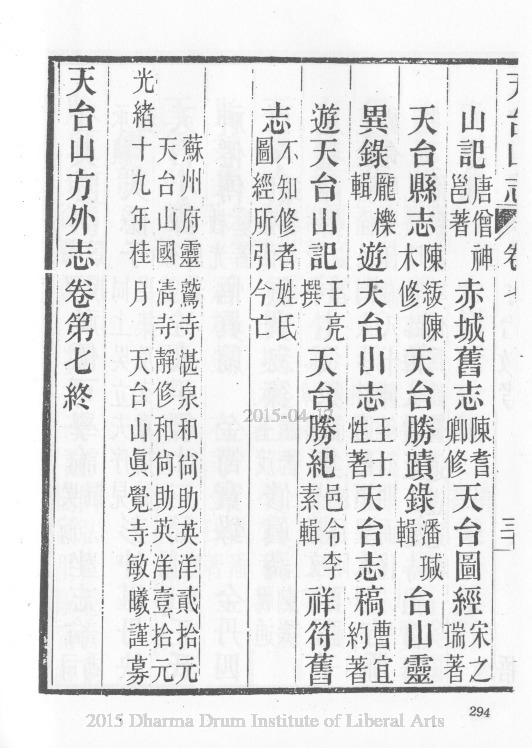 天台山志 卷七 三十
山記唐僧神邕著赤城舊志陳耆卿修天台圖經宋之瑞著
天台縣志陳綬陳木修天台勝蹟錄潘瑊輯台山靈
異錄龎櫟輯遊天台山志王士性著天台志稿曹宜約著
遊天台山記王亮撰天台勝紀邑令李素輯祥符舊
志不知修者姓氏圖經所引今亡
蘇州府靈鷲寺湛泉和尙助英洋貳拾元
天台山國清寺靜修和尙助英洋壹拾元
光緒十九年桂月 天台山眞覺寺敏曦謹募
天台山方外志卷第七終
2015-04-12
294
2015 Dharma Drum Institute of Liberal Arts